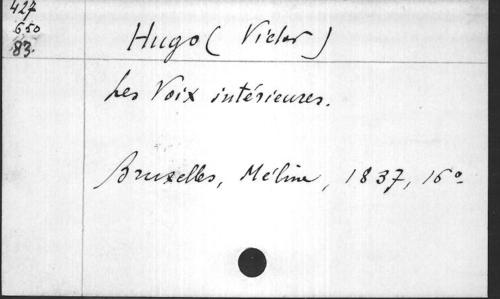 427
650
83.
Hugo (Victor)
Les Voix intérieures.
Bruxelles, Méline, 1837, 16°